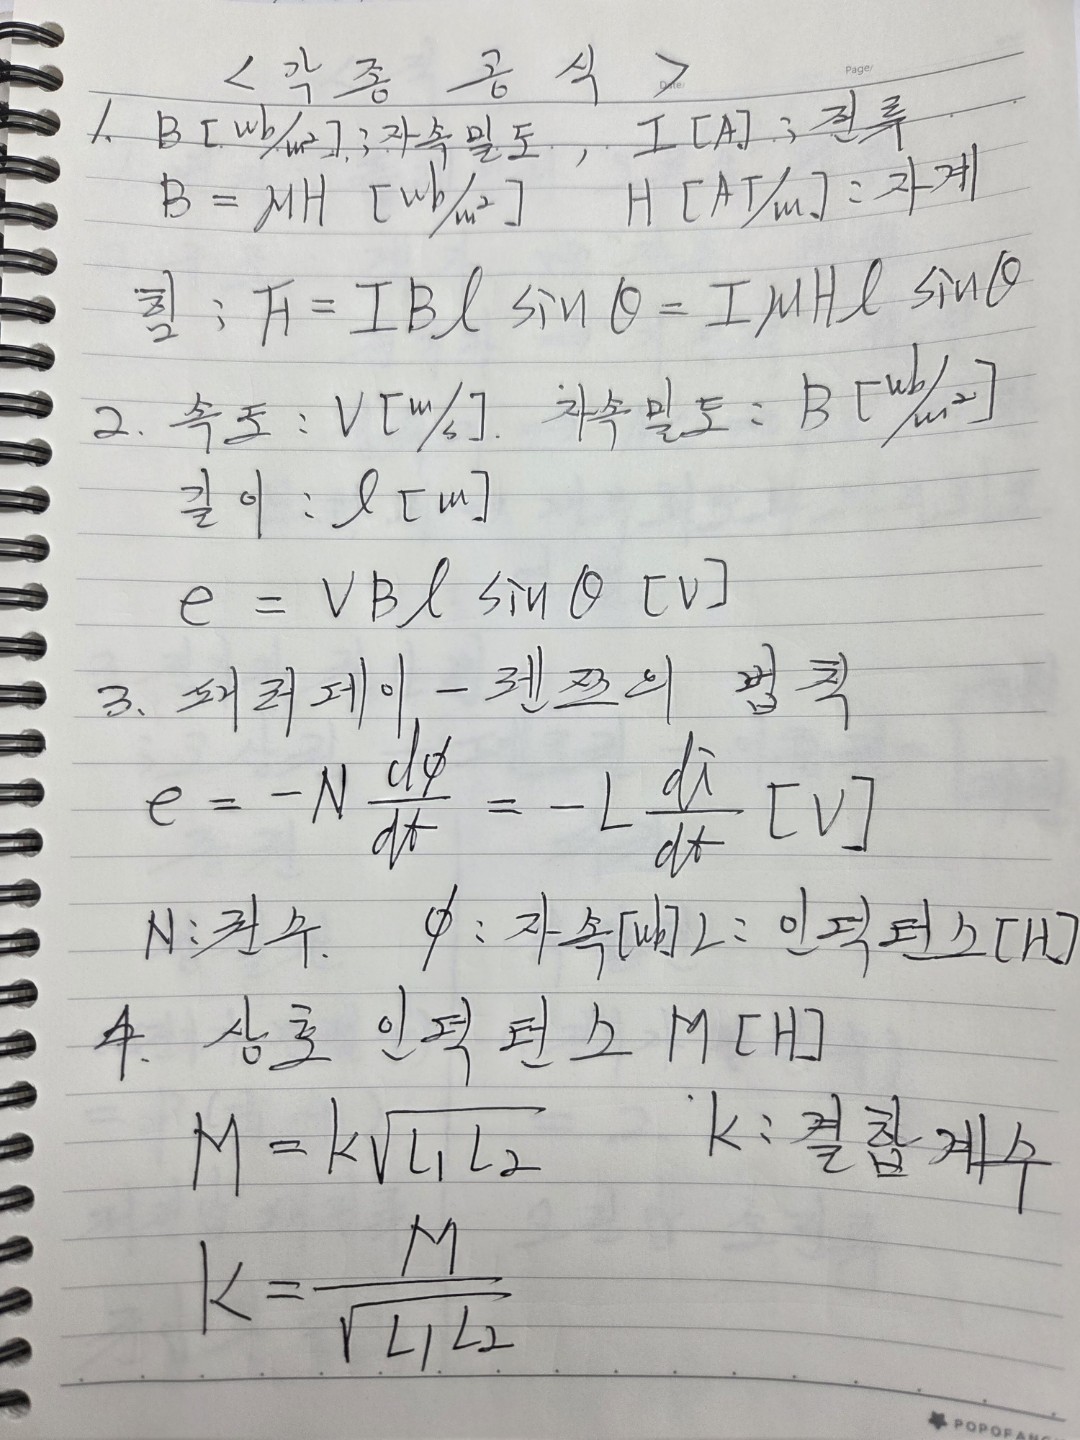 <각종 공식>
Page/
Date/
1. B [wb/m²] : 자속밀도, I [A] : 전류
B = μH [wb/m²] H [AT/m] : 자계
힘 : F = IBl sinθ = IμHl sinθ
2. 속도 : V [m/s]. 자속밀도 : B [wb/m²]
길이 : l [m]
e = VBl sinθ [V]
3. 패러데이 - 렌쯔의 법칙
e = -N dφ/dt = -L di/dt [V]
N : 권수. φ : 자속 [wb] L : 인덕턴스 [H]
4. 상호 인덕턴스 M [H]
M = k√L₁L₂ k : 결합계수
k = M/√L₁L₂